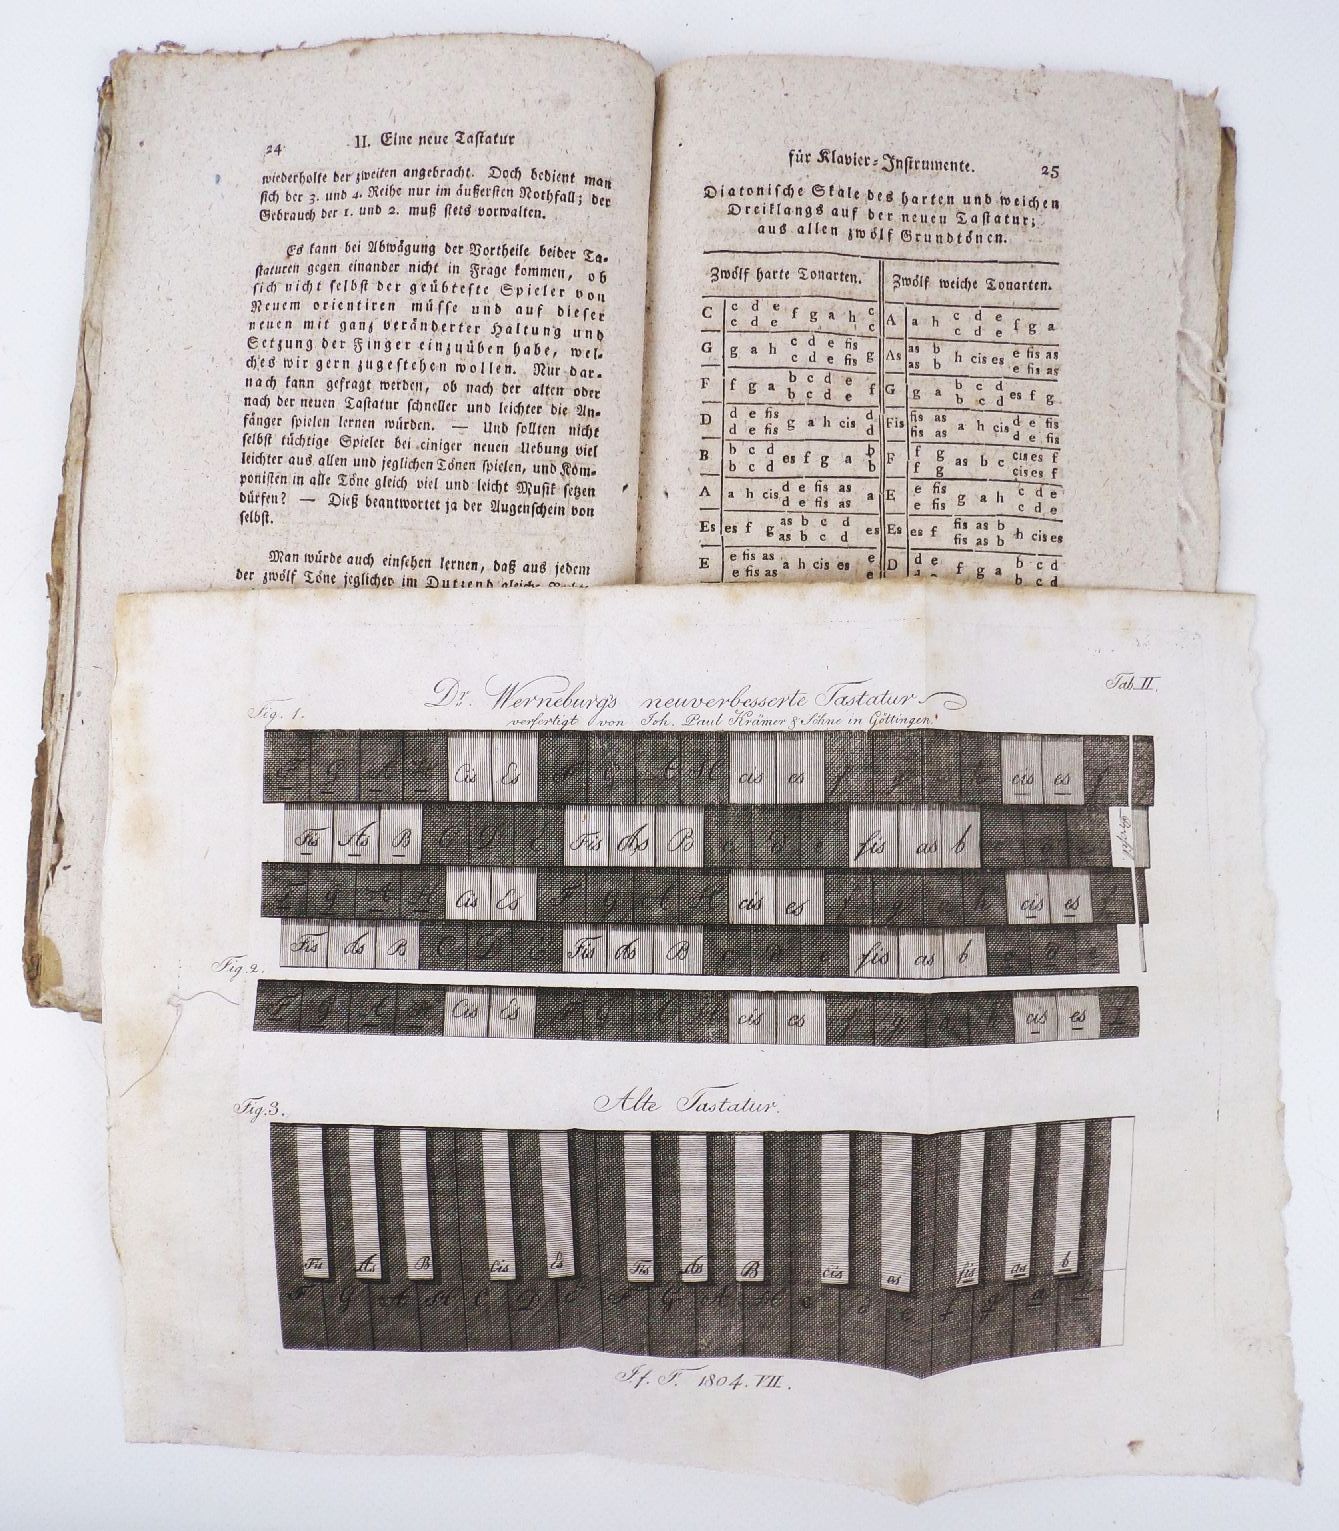 24
II. Eine neue Tastatur
wiederholte der zweiten angebracht. Doch bedient man
sich der 3. und 4. Reihe nur im äußersten Nothfall; der
Gebrauch der 1. und 2. muß stets vorwalten.
Es kann bei Abwägung der Vortheile beider Ta-
staturen gegen einander nicht in Frage kommen, ob
sich nicht selbst der geübteste Spieler von
Neuem orientiren müsse und auf dieser
neuen mit ganz veränderter Haltung und
Setzung der Finger einzuüben habe, wel-
ches wir gern zugestehen wollen. Nur dar-
nach kann gefragt werden, ob nach der alten oder
nach der neuen Tastatur schneller und leichter die An-
fänger spielen lernen würden. — Und sollten nicht
selbst tüchtige Spieler bei einiger neuen Uebung viel
leichter aus allen und jeglichen Tönen spielen, und Kom-
ponisten in alle Töne gleich viel und leicht Musik setzen
dürfen? — Dieß beantwortet ja der Augenschein von
selbst.
Man würde auch einsehen lernen, daß aus jedem
der zwölf Töne jeglicher im Dutzend
für Klavier-Instrumente.
25
Diatonische Skale des harten und weichen
Dreiklangs auf der neuen Tastatur;
aus allen zwölf Grundtönen.
Zwölf harte Tonarten. Zwölf weiche Tonarten.
c d e c c d e
C f g a h A a h f g a
c d e c c d e
c d e fis as b e fis as
G g a h g As h cis es
c d e fis as b e fis as
b c d e b c d
F f g a f G g a es f g
b c d e b c d
d e fis d fis as d e fis
D g a h cis Fis a h cis
d e fis d fis as d e fis
b c d b f g cis es f
B es f g a F as b c
b c d b f g cis es f
d e fis as e fis c d e
A a h cis a E g a h
d e fis as e fis c d e
as b c d fis as b
Es es f g es Es es f h cis es
as b c d fis as b
e fis as e d e b c d
E a h cis es D f g a
e fis as e b c d
Tab. II.
Dr. Werneburg's neuverbesserte Tastatur
Fig. 1.
verfertigt von Joh. Paul Krämer & Söhne in Göttingen.
F G A H Cis Es F G A H cis es f g a h cis es f
Fis As B C D E Fis As B c d e fis as b c d e
F G A H Cis Es F G A H cis es f g a h cis es f
Fis As B C D E Fis As B c d e fis as b c d e
Fig. 2.
F G A H Cis Es F G A H cis es f g a h cis es f
Alte Tastatur.
Fig. 3.
Fis As B Cis Es Fis As B cis es fis as b
F G A H C D E F G A H c d e f g a h
J. f. F. 1804. VII.